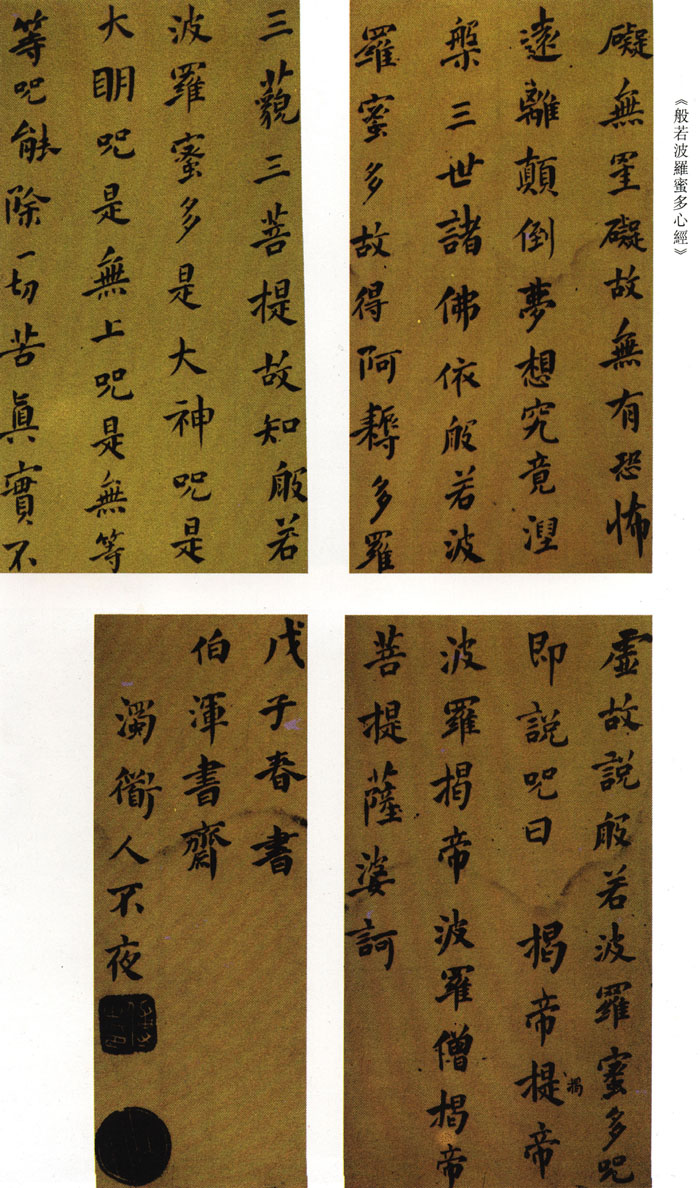 《般若波羅蜜多心經》
礙無罣礙故無有恐怖
遠離顛倒夢想究竟涅
槃三世諸佛依般若波
羅蜜多故得阿耨多羅
三藐三菩提故知般若
波羅蜜多是大神咒是
大明咒是無上咒是無等
等咒能除一切苦真實不
虛故說般若波羅蜜多咒
即說咒曰 揭帝提帝
揭
波羅揭帝波羅僧揭帝
菩提薩婆訶
戊子春書
伯渾書齋
濁衢人不夜